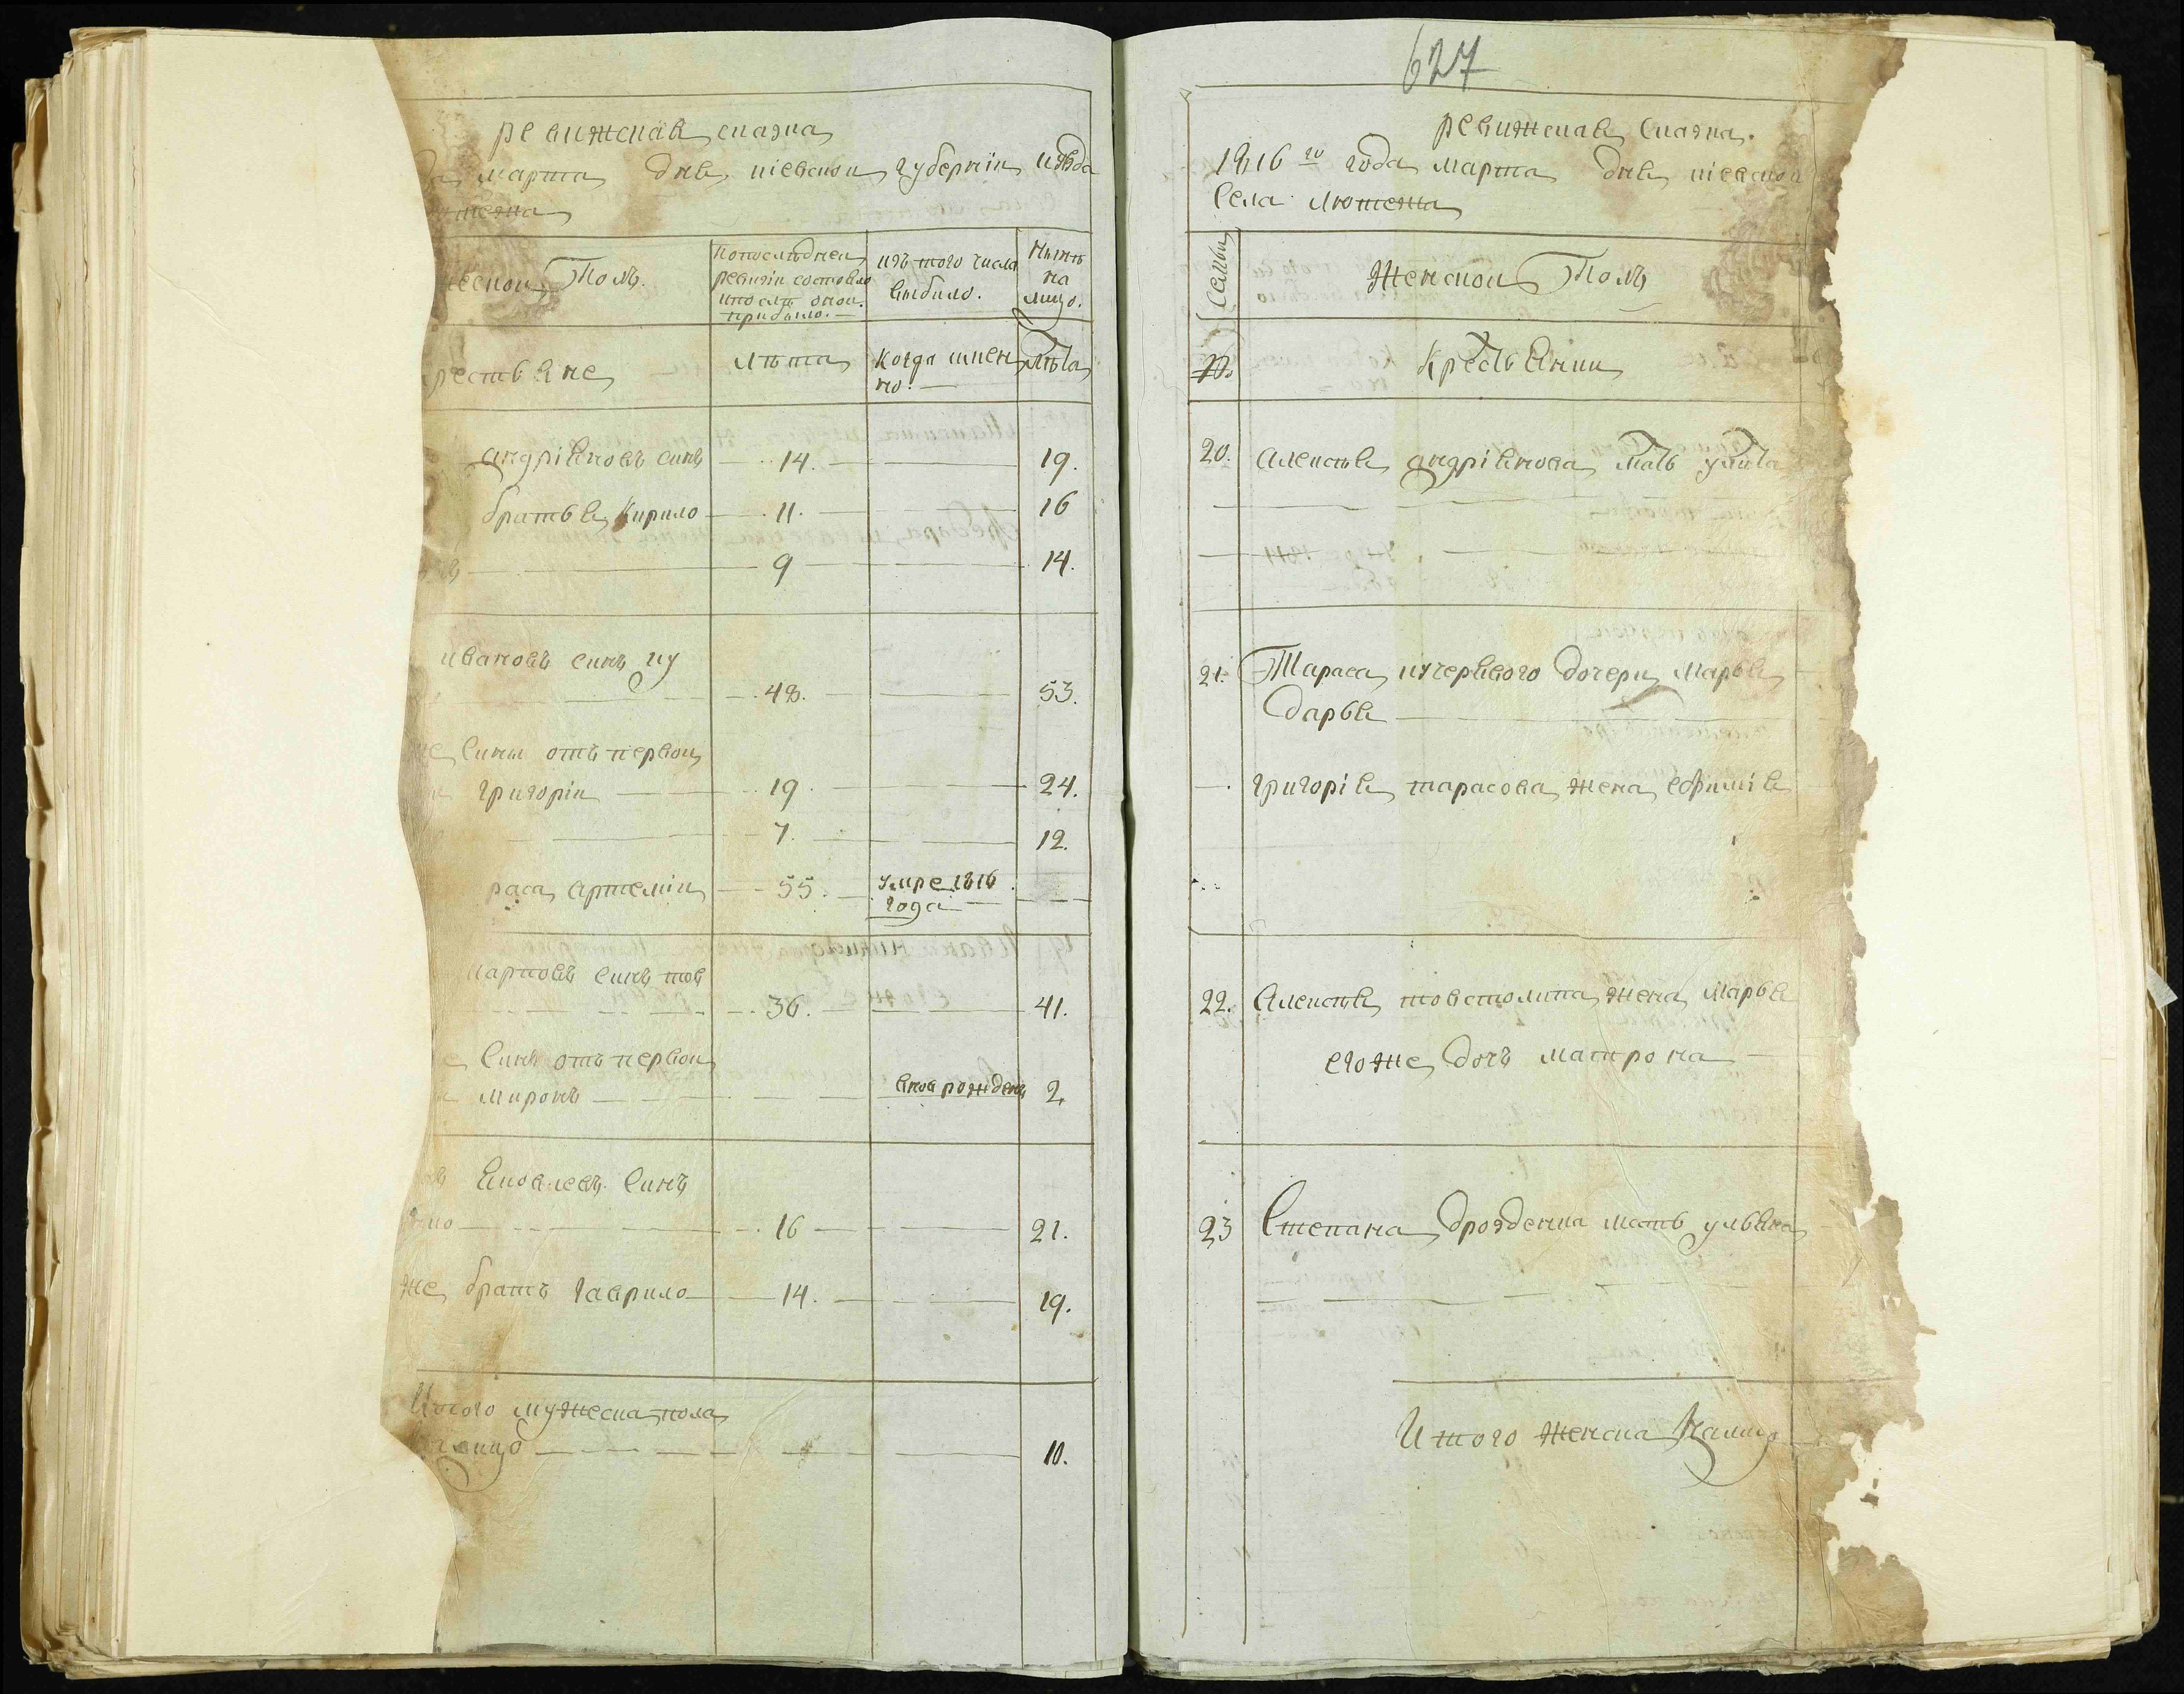 ревижская сказка
марта дня киевской губернии уѣзда
Полъ.
попослѣдней
ревизіи состояло
ипослѣ оной
прибыло.
изъ того числа
выбыло.
Нынѣ
на
лицо.
рестьяне
лѣта
Когда имен
но.
лѣта
андріяновъ синъ 14. 19.
братья Кирило 11. 16
9 14.
ивановъ синъ ку
48. 53.
сины отъ первой
григорій 19 24.
7. 12.
раса артемій 55. умре 1816
года
карповъ синъ тов
36. 41.
синъ отъ первой
миронъ вновь рожденъ 2
яковлевъ синъ
16 21.
же братъ гаврило 14. 19.
Итого мужеска пола
10.
627
ревижская сказка.
1816 го года марта дня киевской
села лютежа
семьи
Женской Полъ
№.
Крестьянки
20. алексѣя андріянова мать улита
21. Тараса кучерявого дочери марья
дарья
григорія тарасова жена ефимія
22. алексѣя товстолита жена марья
егоже дочъ матрона
23 Степана дрозденка мать ульяна
Итого женска налицо